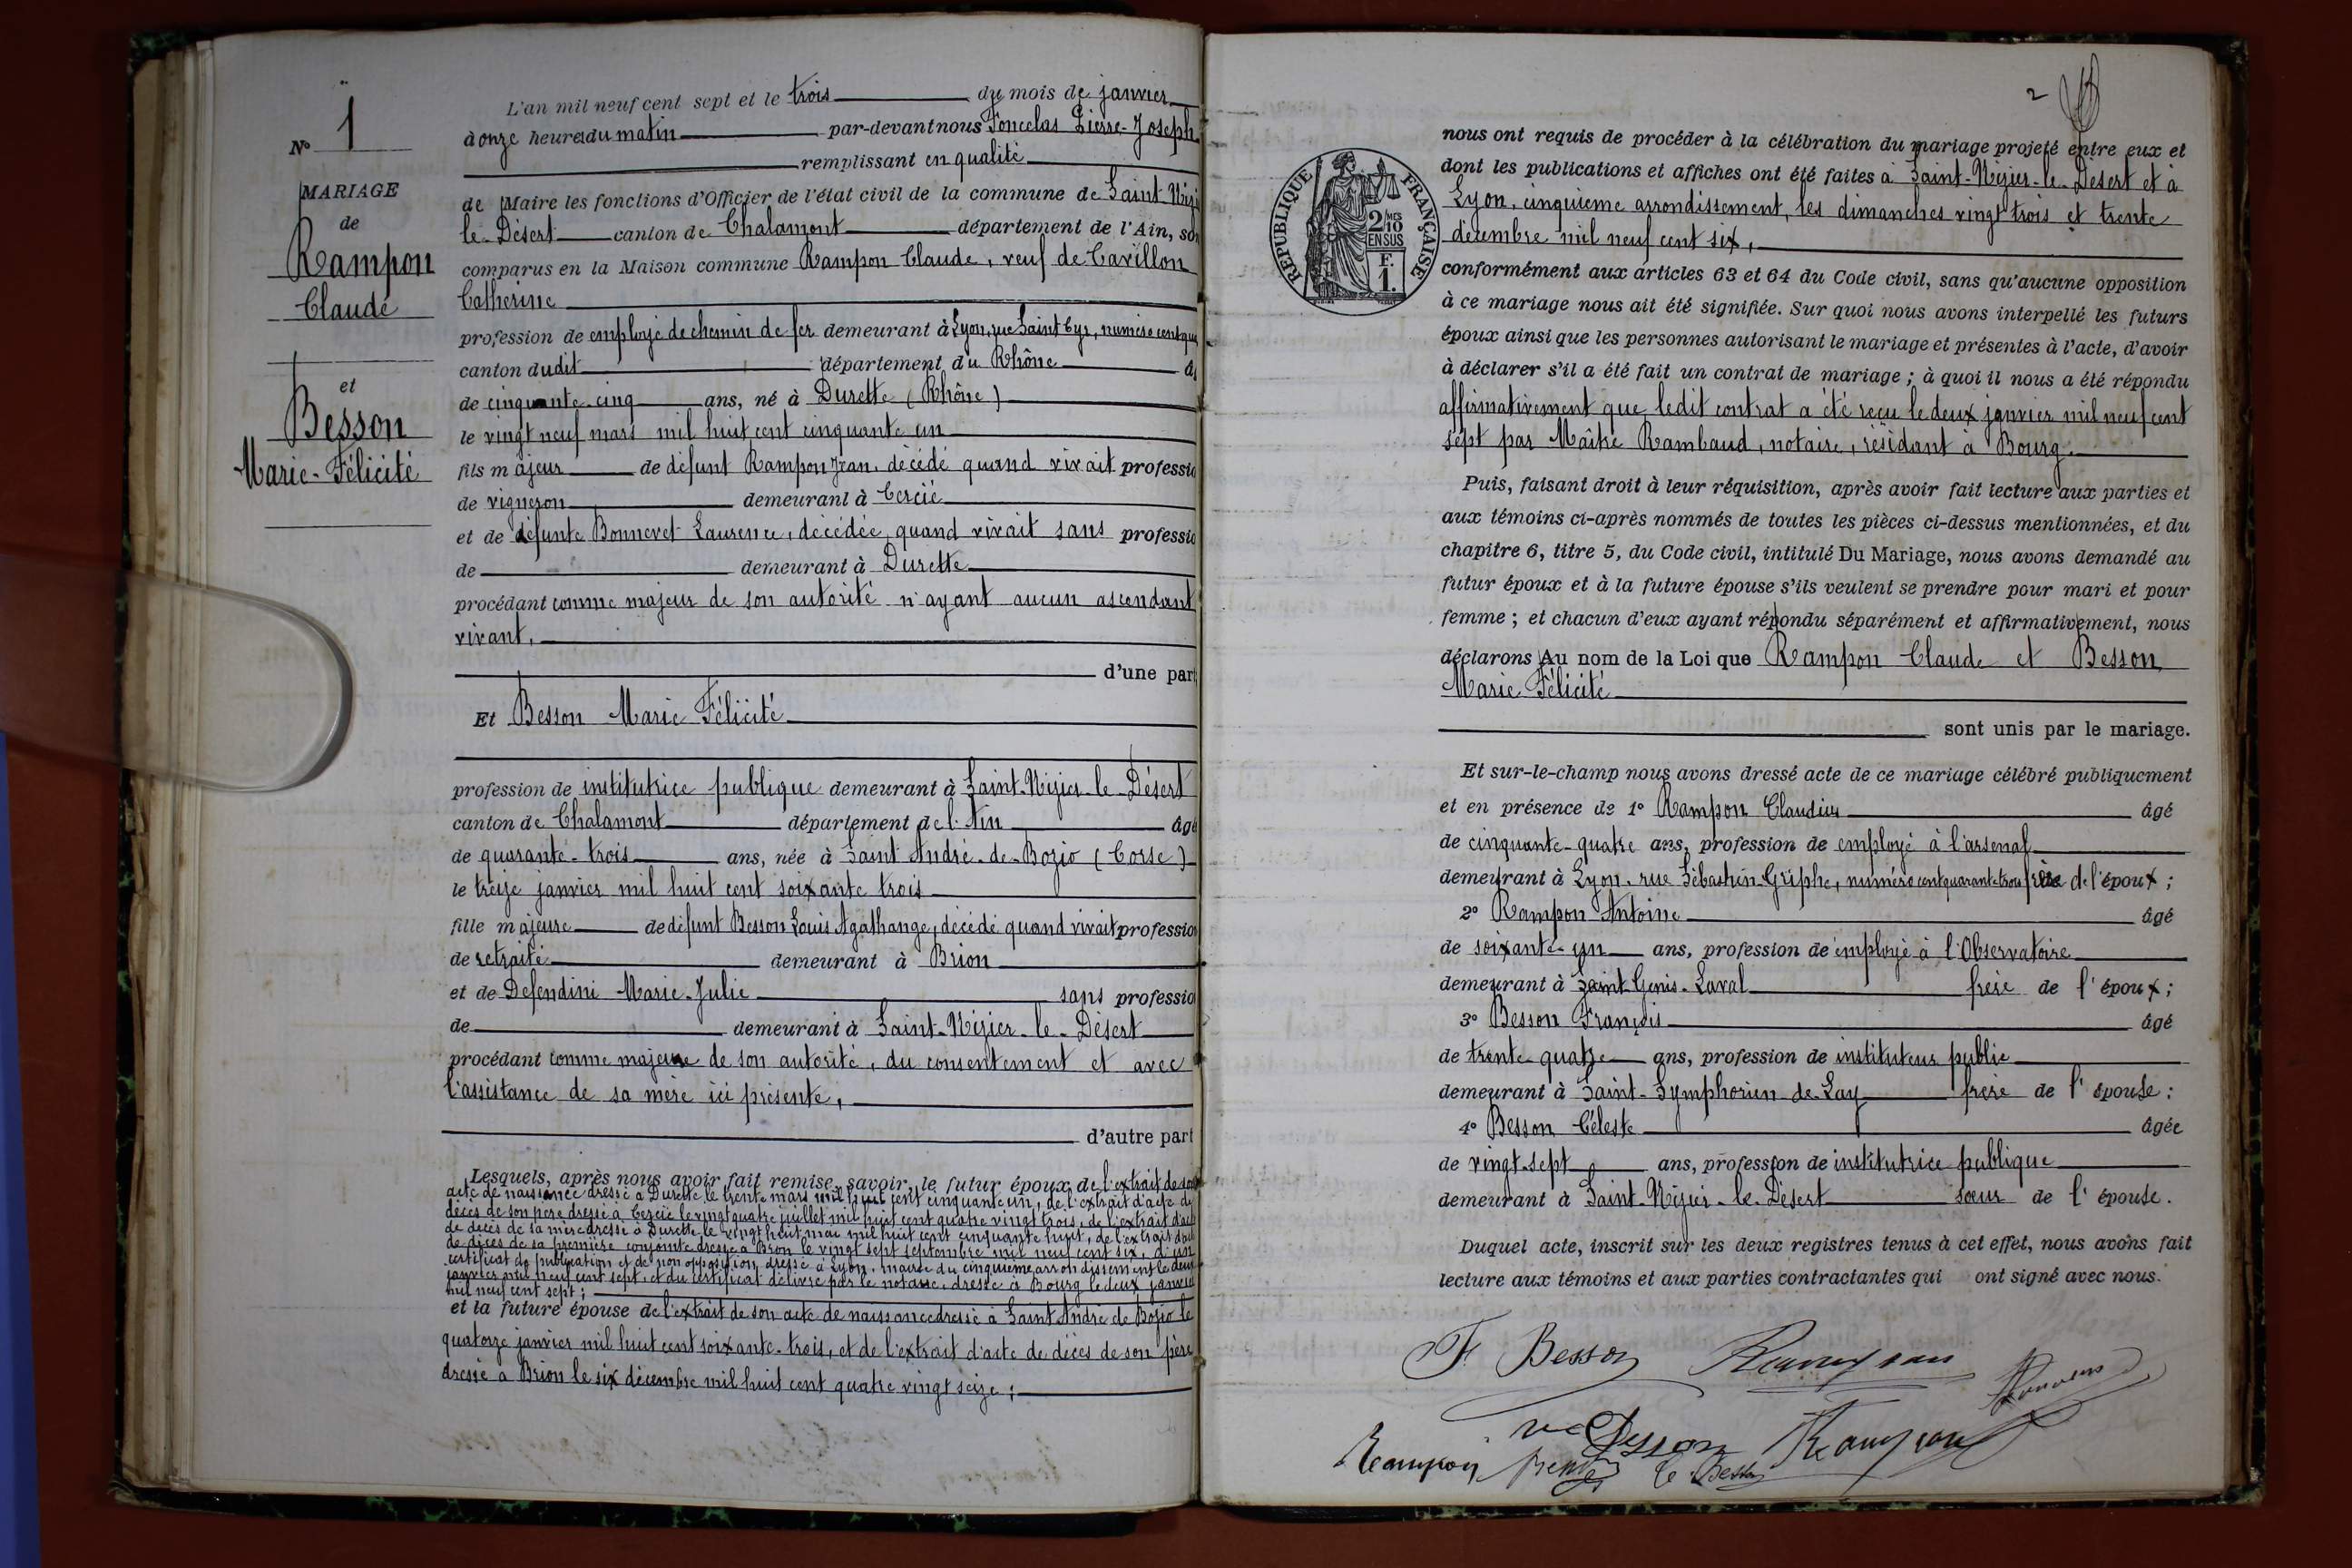 N° 1
MARIAGE
de
Rampon
Claude
et
Besson
Marie-Félicité
L'an mil neuf cent sept et le trois du mois de janvier
à onze heures du matin par-devant nous Foncelas Pierre-Joseph
remplissant en qualité
de Maire les fonctions d'Officier de l'état civil de la commune de Saint-Nizi
le-Désert canton de Chalamont département de l'Ain, son
comparus en la Maison commune Rampon Claude, veuf de Cavillon
Catherine
profession de employé de chemin de fer demeurant à Lyon, rue Saint Cyr, numéro cent
canton dudit département du Rhône
de cinquante-cinq ans, né à Durette (Rhône)
le vingt neuf mars mil huit cent cinquante un
fils majeur de défunt Rampon Jean, décédé quand vivait professio
de vigneron demeurant à Cercié
et de défunte Bonnevet Laurence, décédée, quand vivait sans professio
de demeurant à Durette
procédant comme majeur de son autorité n'ayant aucun ascendant
vivant,
d'une part
Et Besson Marie Félicité
profession de institutrice publique demeurant à Saint-Nizier-le-Désert
canton de Chalamont département de l'Ain âgé
de quarante-trois ans, née à Saint André-de-Bozio (Corse)
le treize janvier mil huit cent soixante trois
fille majeure de défunt Besson Louis Agathange, décédé quand vivait professio
de retraité demeurant à Brion
et de Defendini Marie-Julie sans professio
de demeurant à Saint-Nizier-le-Désert
procédant comme majeure de son autorité, du consentement et avec
l'assistance de sa mère ici présente,
d'autre part
Lesquels, après nous avoir fait remise, savoir, le futur époux de l'extrait de son
acte de naissance dressé à Durette le trente mars mil huit cent cinquante un, de l'extrait d'acte de
décès de son père dressé à Cercié le vingt quatre juillet mil huit cent quatre vingt trois, de l'extrait d'acte
de décès de sa mère dressé à Durette le vingt huit mai mil huit cent cinquante huit, de l'extrait d'acte
de décès de sa première conjointe dressé à Bron le vingt sept septembre mil neuf cent six, d'un
certificat de publication et de non opposition dressé à Lyon, mairie du cinquième arrondissement le deux
janvier mil neuf cent sept, et du certificat délivré par le notaire, dressé à Bourg le deux janvier
mil neuf cent sept;
et la future épouse de l'extrait de son acte de naissance dressé à Saint André de Bozio le
quatorze janvier mil huit cent soixante-trois, et de l'extrait d'acte de décès de son père
dressé à Brion le six décembre mil huit cent quatre vingt seize;
2
RÉPUBLIQUE FRANÇAISE
2/10 MES
EN SUS
F.
1.
nous ont requis de procéder à la célébration du mariage projeté entre eux et
dont les publications et affiches ont été faites à Saint-Nizier-le-Désert et à
Lyon, cinquième arrondissement, les dimanches vingt trois et trente
décembre mil neuf cent six,
conformément aux articles 63 et 64 du Code civil, sans qu'aucune opposition
à ce mariage nous ait été signifiée. Sur quoi nous avons interpellé les futurs
époux ainsi que les personnes autorisant le mariage et présentes à l'acte, d'avoir
à déclarer s'il a été fait un contrat de mariage; à quoi il nous a été répondu
affirmativement que ledit contrat a été reçu le deux janvier mil neuf cent
sept par Maître Rambaud, notaire, résidant à Bourg.
Puis, faisant droit à leur réquisition, après avoir fait lecture aux parties et
aux témoins ci-après nommés de toutes les pièces ci-dessus mentionnées, et du
chapitre 6, titre 5, du Code civil, intitulé Du Mariage, nous avons demandé au
futur époux et à la future épouse s'ils veulent se prendre pour mari et pour
femme; et chacun d'eux ayant répondu séparément et affirmativement, nous
déclarons Au nom de la Loi que Rampon Claude et Besson
Marie Félicité
sont unis par le mariage.
Et sur-le-champ nous avons dressé acte de ce mariage célébré publiquement
et en présence de 1° Rampon Claudius âgé
de cinquante-quatre ans, profession de employé à l'arsenal
demeurant à Lyon, rue Sébastien-Griphe, numéro cent quarante-trois frère de l'époux;
2° Rampon Antoine âgé
de soixante-un ans, profession de employé à l'Observatoire
demeurant à Saint Genis-Laval frère de l'époux;
3° Besson François âgé
de trente quatre ans, profession de instituteur public
demeurant à Saint-Symphorien-de-Lay frère de l'épouse:
4° Besson Céleste âgée
de vingt-sept ans, profession de institutrice publique
demeurant à Saint-Nizier-le-Désert sœur de l'épouse.
Duquel acte, inscrit sur les deux registres tenus à cet effet, nous avons fait
lecture aux témoins et aux parties contractantes qui ont signé avec nous.
F. Besson Rampon
Ve Besson Rampon
Rampon C. Besson